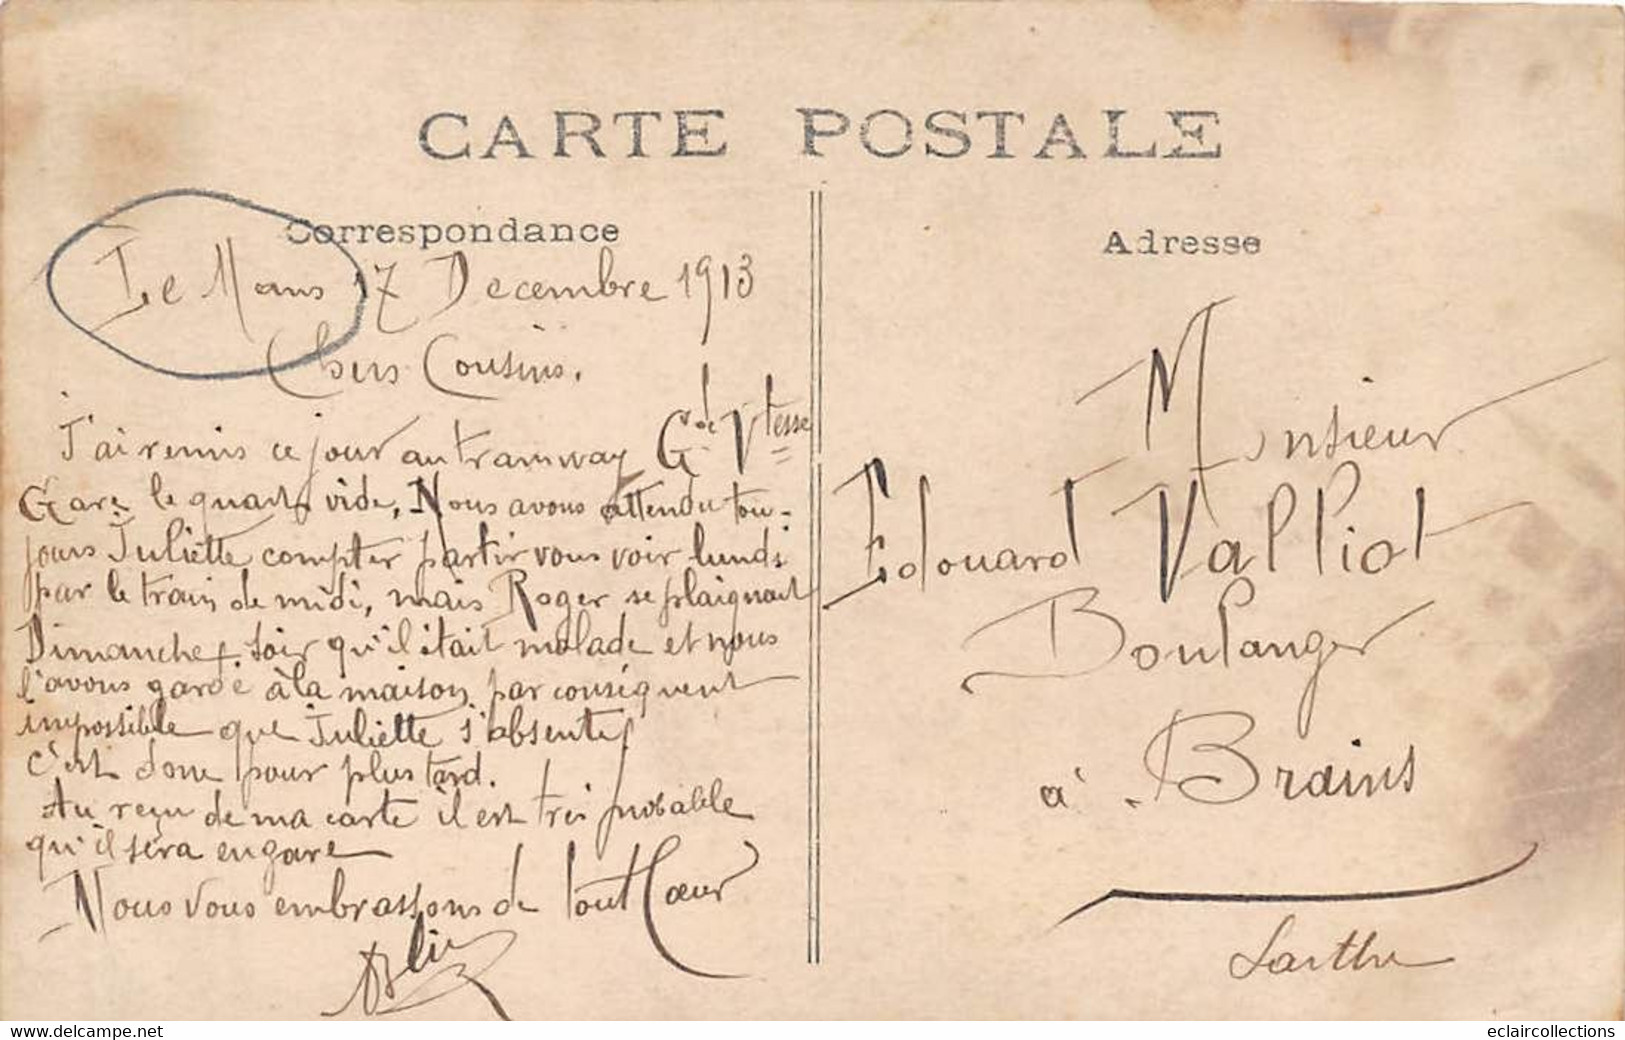 CARTE POSTALE
Correspondance
Le Mans 17 Decembre 1913
Chers Cousins.
J'ai remis ce jour au tramway Gde Vtesse
Gare le quart vide, Nous avons attendu tou-
jours Juliette compter partir vous voir lundi
par le train de midi, mais Roger se plaignait
Dimanche soir qu'il était malade et nous
l'avons gardé à la maison par conséquent
impossible que Juliette s'absente
c'est donc pour plus tard.
Au reçu de ma carte il est très probable
qu'il sera en gare
Nous vous embrassons de tout Cœur
Adresse
Monsieur
Edouard Valliot
Boulanger
à Brains
Sarthe
eclaircollections